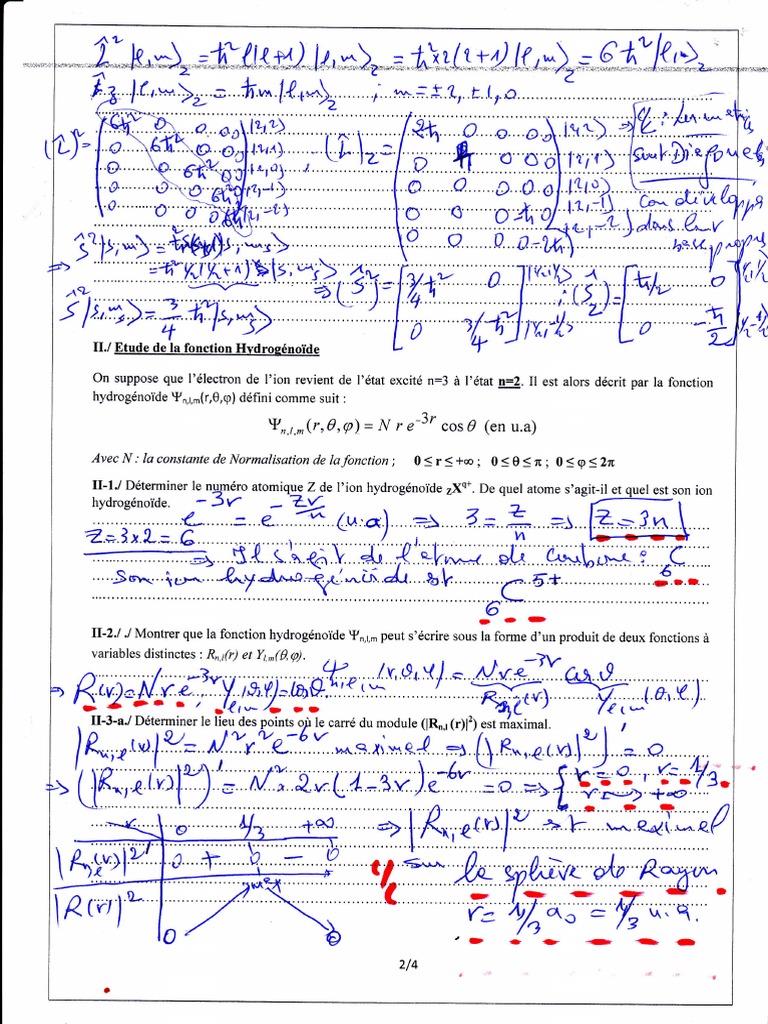 L̂² |l,m⟩₂ = ħ² l(l+1) |l,m⟩₂ = ħ²×2(2+1) |l,m⟩₂ = 6ħ² |l,m⟩₂
|l,m⟩₂ = ħm |l,m⟩₂ ; m = ±2, ±1, 0
(L̂)² = ( 6ħ² 0 0 0 0 ) |2,2⟩ (L̂)z = ( 2ħ 0 0 0 0 ) |2,2⟩ ⇒
( 0 6ħ² 0 0 0 ) |2,1⟩ ( 0 ħ 0 0 0 ) |2,1⟩ sont Diagonales
( 0 0 6ħ² 0 0 ) |2,0⟩ ( 0 0 0 0 0 ) |2,0⟩
( 0 0 0 6ħ² 0 ) |2,-1⟩ ( 0 0 0 -ħ 0 ) |2,-1⟩ dans leur
( 0 0 0 0 6ħ² ) |2,-2⟩ ( 0 0 0 0 -2ħ ) |2,-2⟩ base propre
Ŝ² |s,ms⟩ = ħ² s(s+1) |s,ms⟩
⇒ = ħ² ½(½+1) |s,ms⟩ ⇒ (Ŝ²) = [ 3/4 ħ² 0 ; 0 3/4 ħ² ] |½,½⟩ |½,-½⟩ ; (Ŝz) = [ ħ/2 0 ; 0 -ħ/2 ] |½,½⟩ |½,-½⟩
Ŝ² |s,ms⟩ = 3/4 ħ² |s,ms⟩
II./ Etude de la fonction Hydrogénoïde
On suppose que l'électron de l'ion revient de l'état excité n=3 à l'état n=2. Il est alors décrit par la fonction
hydrogénoïde Ψn,l,m(r,θ,φ) défini comme suit :
Ψn,l,m(r,θ,φ) = N r e^-3r cos θ (en u.a)
Avec N : la constante de Normalisation de la fonction ; 0 ≤ r ≤ +∞ ; 0 ≤ θ ≤ π ; 0 ≤ φ ≤ 2π
II-1./ Déterminer le numéro atomique Z de l'ion hydrogénoïde zX^q+. De quel atome s'agit-il et quel est son ion
hydrogénoïde.
e^-3r = e^-Zr/n (u.a) ⇒ 3 = Z/n ⇒ Z = 3n
Z = 3×2 = 6
⇒ Il s'agit de l'atome de carbone : ₆C
Son ion hydrogénoïde est ₆C⁵⁺
II-2./ ./ Montrer que la fonction hydrogénoïde Ψn,l,m peut s'écrire sous la forme d'un produit de deux fonctions à
variables distinctes : Rn,l(r) et Yl,m(θ,φ).
Ψn,l,m(r,θ,φ) = N r e^-3r cosθ
⇒ R(r) = N r e^-3r, Yl,m(θ,φ) = cosθ Rn,l(r) Yl,m(θ,φ)
II-3-a./ Déterminer le lieu des points où le carré du module (|Rn,l (r)|²) est maximal.
|Rn,l(r)|² = N² r² e^-6r maximal ⇒ (|Rn,l(r)|²)' = 0
⇒ (|Rn,l(r)|²)' = N² 2r (1-3r) e^-6r = 0 ⇒ { r = 0, r = 1/3
r → +∞
r 0 1/3 +∞ ⇒ |Rn,l(r)|² est maximal
|Rn,l(r)|²' 0 + 0 − 0 sur la sphère de Rayon
|R(r)|² 0 max 0 r = 1/3 a₀ = 1/3 u.a.
2/4